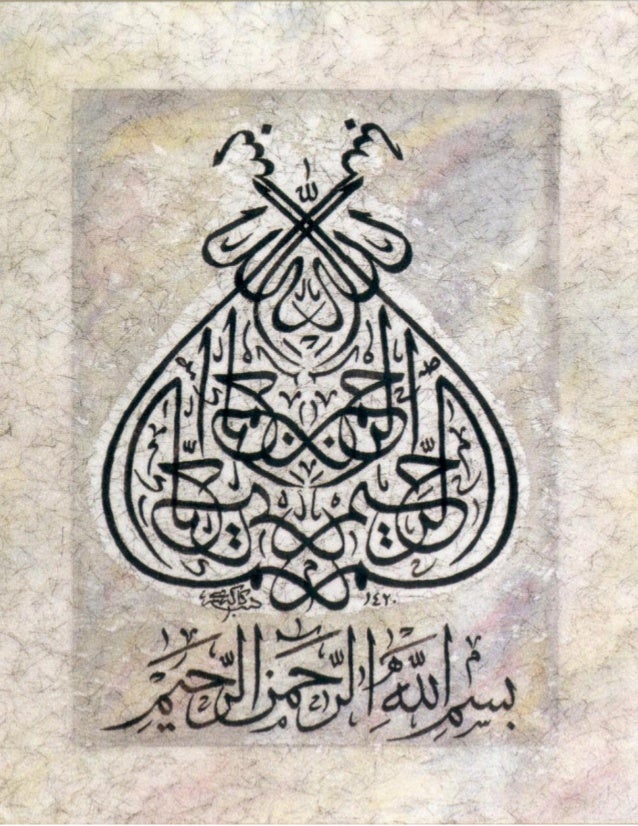 بسم الله الرحمن الرحيم
١٤٢٠
بِسْمِ اللَّهِ الرَّحْمَنِ الرَّحِيمِ